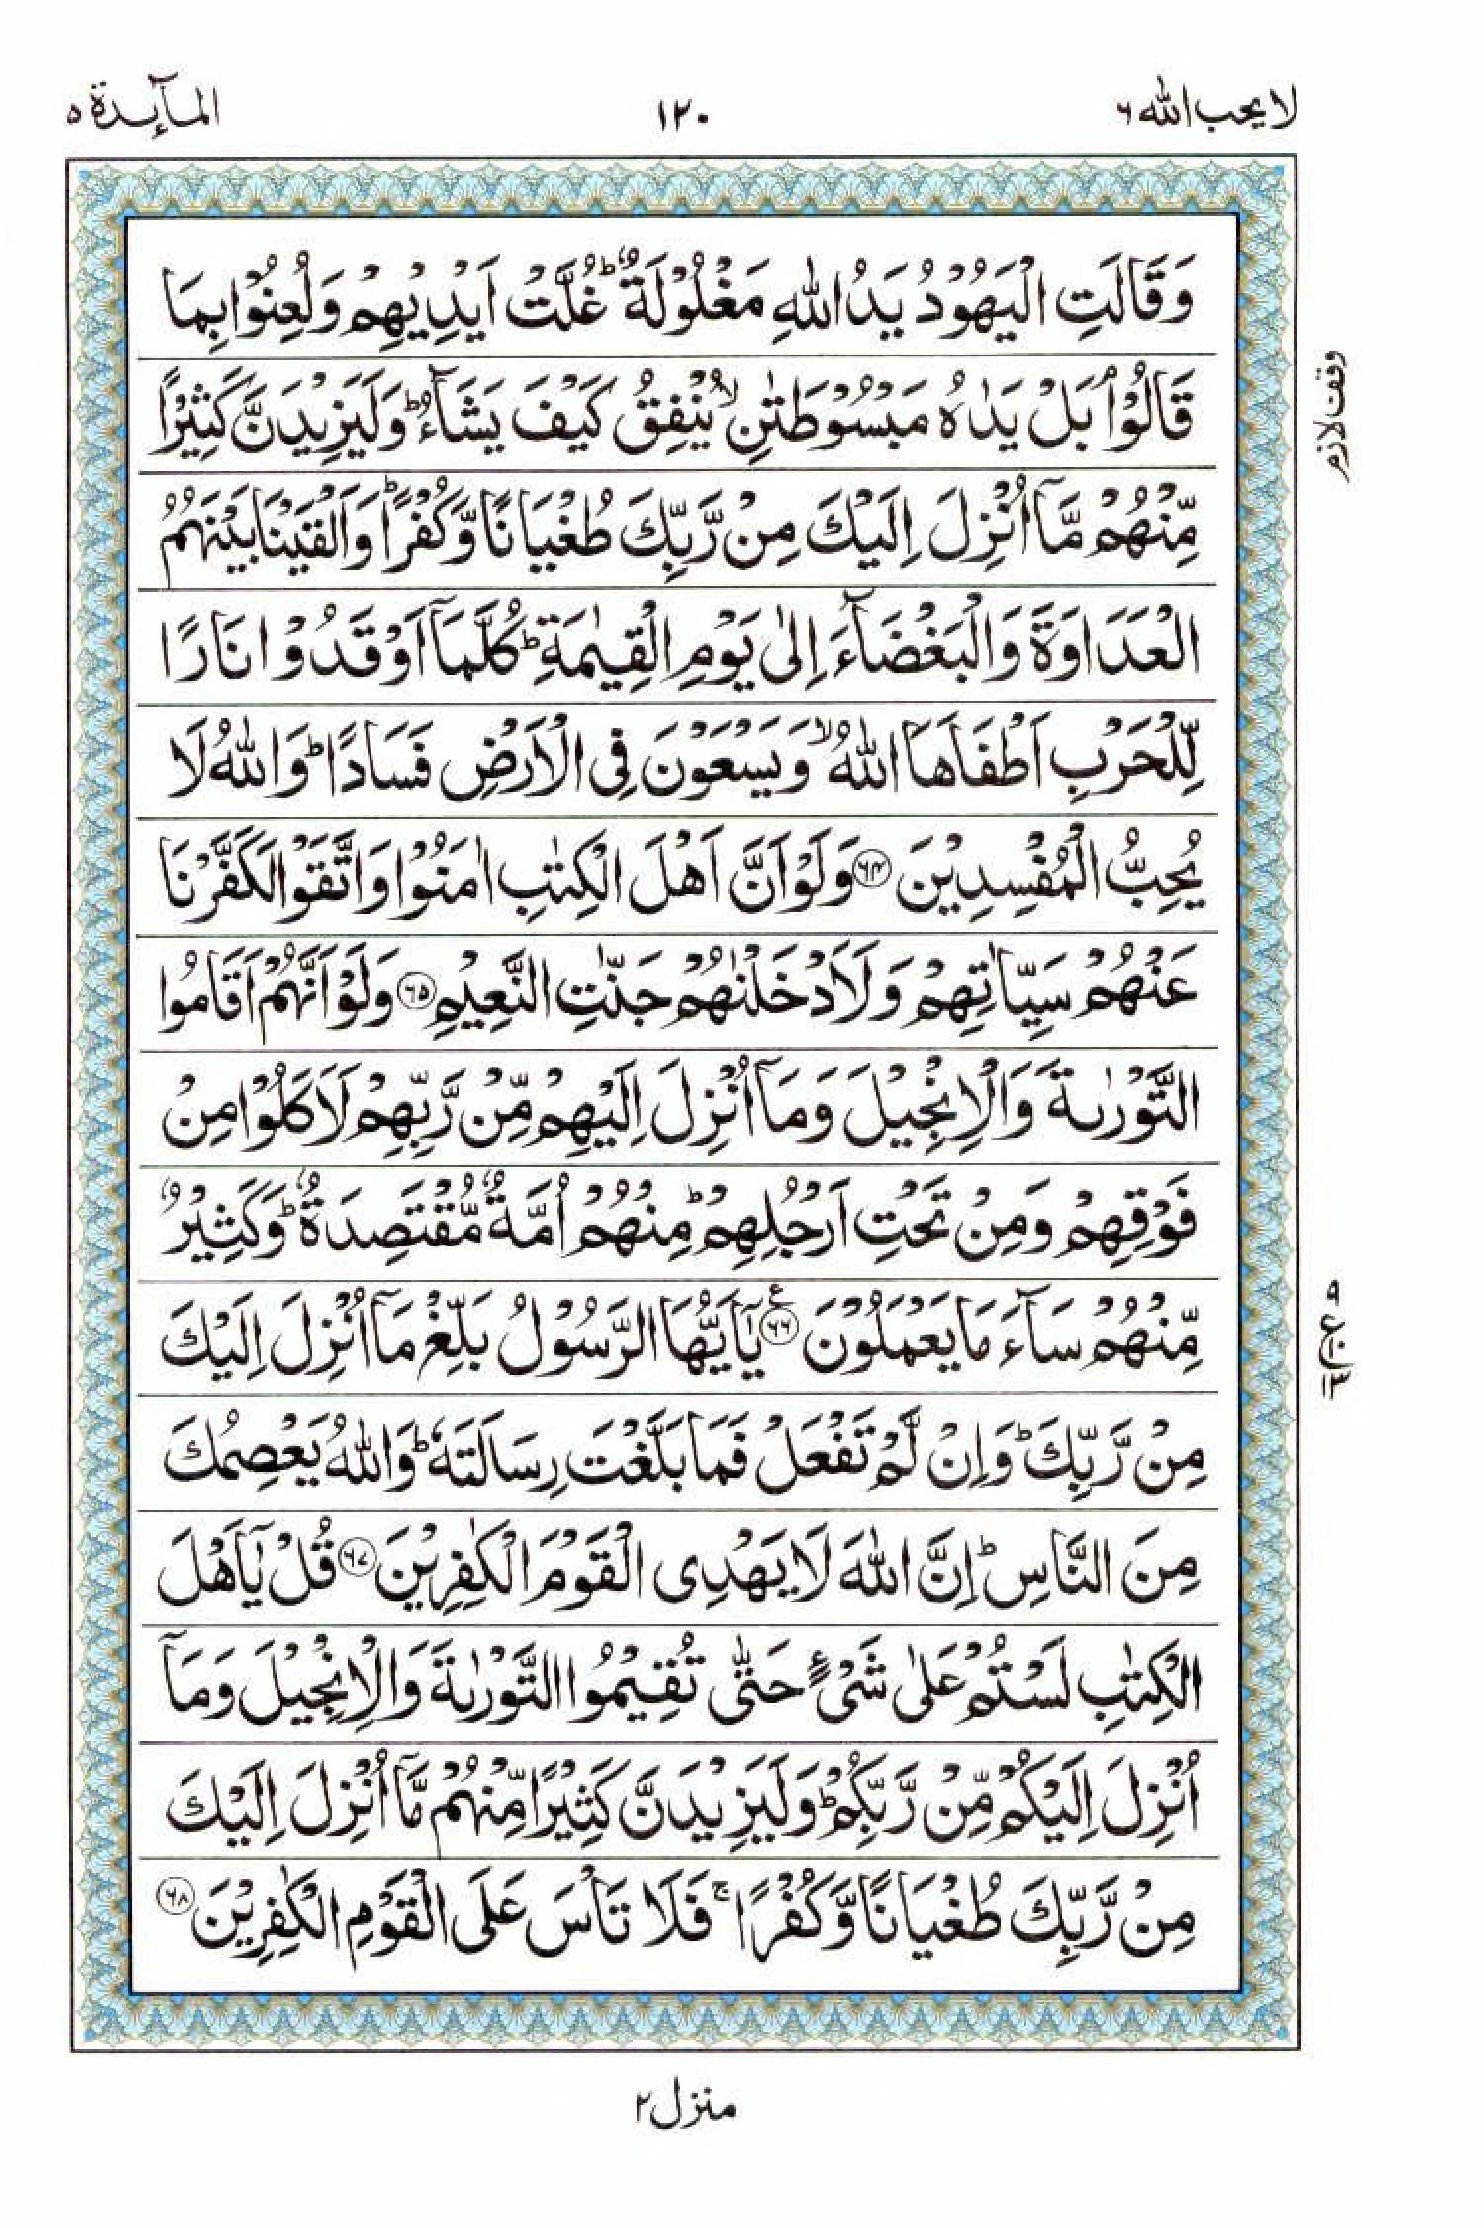 لا يحب الله ٦
١٢٠
المآئدة ٥
وَقَالَتِ الْيَهُوْدُ يَدُ اللّٰهِ مَغْلُوْلَةٌ ؕ غُلَّتْ اَيْدِيْهِمْ وَلُعِنُوْا بِمَا
قَالُوْا ۘ بَلْ يَدٰهُ مَبْسُوْطَتٰنِ ۙ يُنْفِقُ كَيْفَ يَشَآءُ ؕ وَلَيَزِيْدَنَّ كَثِيْرًا
وقف لازم
مِّنْهُمْ مَّآ اُنْزِلَ اِلَيْكَ مِنْ رَّبِّكَ طُغْيَانًا وَّكُفْرًا ؕ وَاَلْقَيْنَا بَيْنَهُمُ
الْعَدَاوَةَ وَالْبَغْضَآءَ اِلٰى يَوْمِ الْقِيٰمَةِ ؕ كُلَّمَآ اَوْقَدُوْا نَارًا
لِّلْحَرْبِ اَطْفَاَهَا اللّٰهُ ۙ وَيَسْعَوْنَ فِى الْاَرْضِ فَسَادًا ؕ وَاللّٰهُ لَا
يُحِبُّ الْمُفْسِدِيْنَ ۝٦٤ وَلَوْ اَنَّ اَهْلَ الْكِتٰبِ اٰمَنُوْا وَاتَّقَوْا لَكَفَّرْنَا
عَنْهُمْ سَيِّاٰتِهِمْ وَلَاَدْخَلْنٰهُمْ جَنّٰتِ النَّعِيْمِ ۝٦٥ وَلَوْ اَنَّهُمْ اَقَامُوا
التَّوْرٰىةَ وَالْاِنْجِيْلَ وَمَآ اُنْزِلَ اِلَيْهِمْ مِّنْ رَّبِّهِمْ لَاَكَلُوْا مِنْ
فَوْقِهِمْ وَمِنْ تَحْتِ اَرْجُلِهِمْ ؕ مِنْهُمْ اُمَّةٌ مُّقْتَصِدَةٌ ؕ وَكَثِيْرٌ
مِّنْهُمْ سَآءَ مَا يَعْمَلُوْنَ ۝٦٦ ع يٰٓاَيُّهَا الرَّسُوْلُ بَلِّغْ مَآ اُنْزِلَ اِلَيْكَ
مِنْ رَّبِّكَ ؕ وَاِنْ لَّمْ تَفْعَلْ فَمَا بَلَّغْتَ رِسَالَتَهٗ ؕ وَاللّٰهُ يَعْصِمُكَ
مِنَ النَّاسِ ؕ اِنَّ اللّٰهَ لَا يَهْدِى الْقَوْمَ الْكٰفِرِيْنَ ۝٦٧ قُلْ يٰٓاَهْلَ
الْكِتٰبِ لَسْتُمْ عَلٰى شَىْءٍ حَتّٰى تُقِيْمُوا التَّوْرٰىةَ وَالْاِنْجِيْلَ وَمَآ
اُنْزِلَ اِلَيْكُمْ مِّنْ رَّبِّكُمْ ؕ وَلَيَزِيْدَنَّ كَثِيْرًا مِّنْهُمْ مَّآ اُنْزِلَ اِلَيْكَ
مِنْ رَّبِّكَ طُغْيَانًا وَّكُفْرًا ۚ فَلَا تَاْسَ عَلَى الْقَوْمِ الْكٰفِرِيْنَ ۝٦٨
منزل ٢